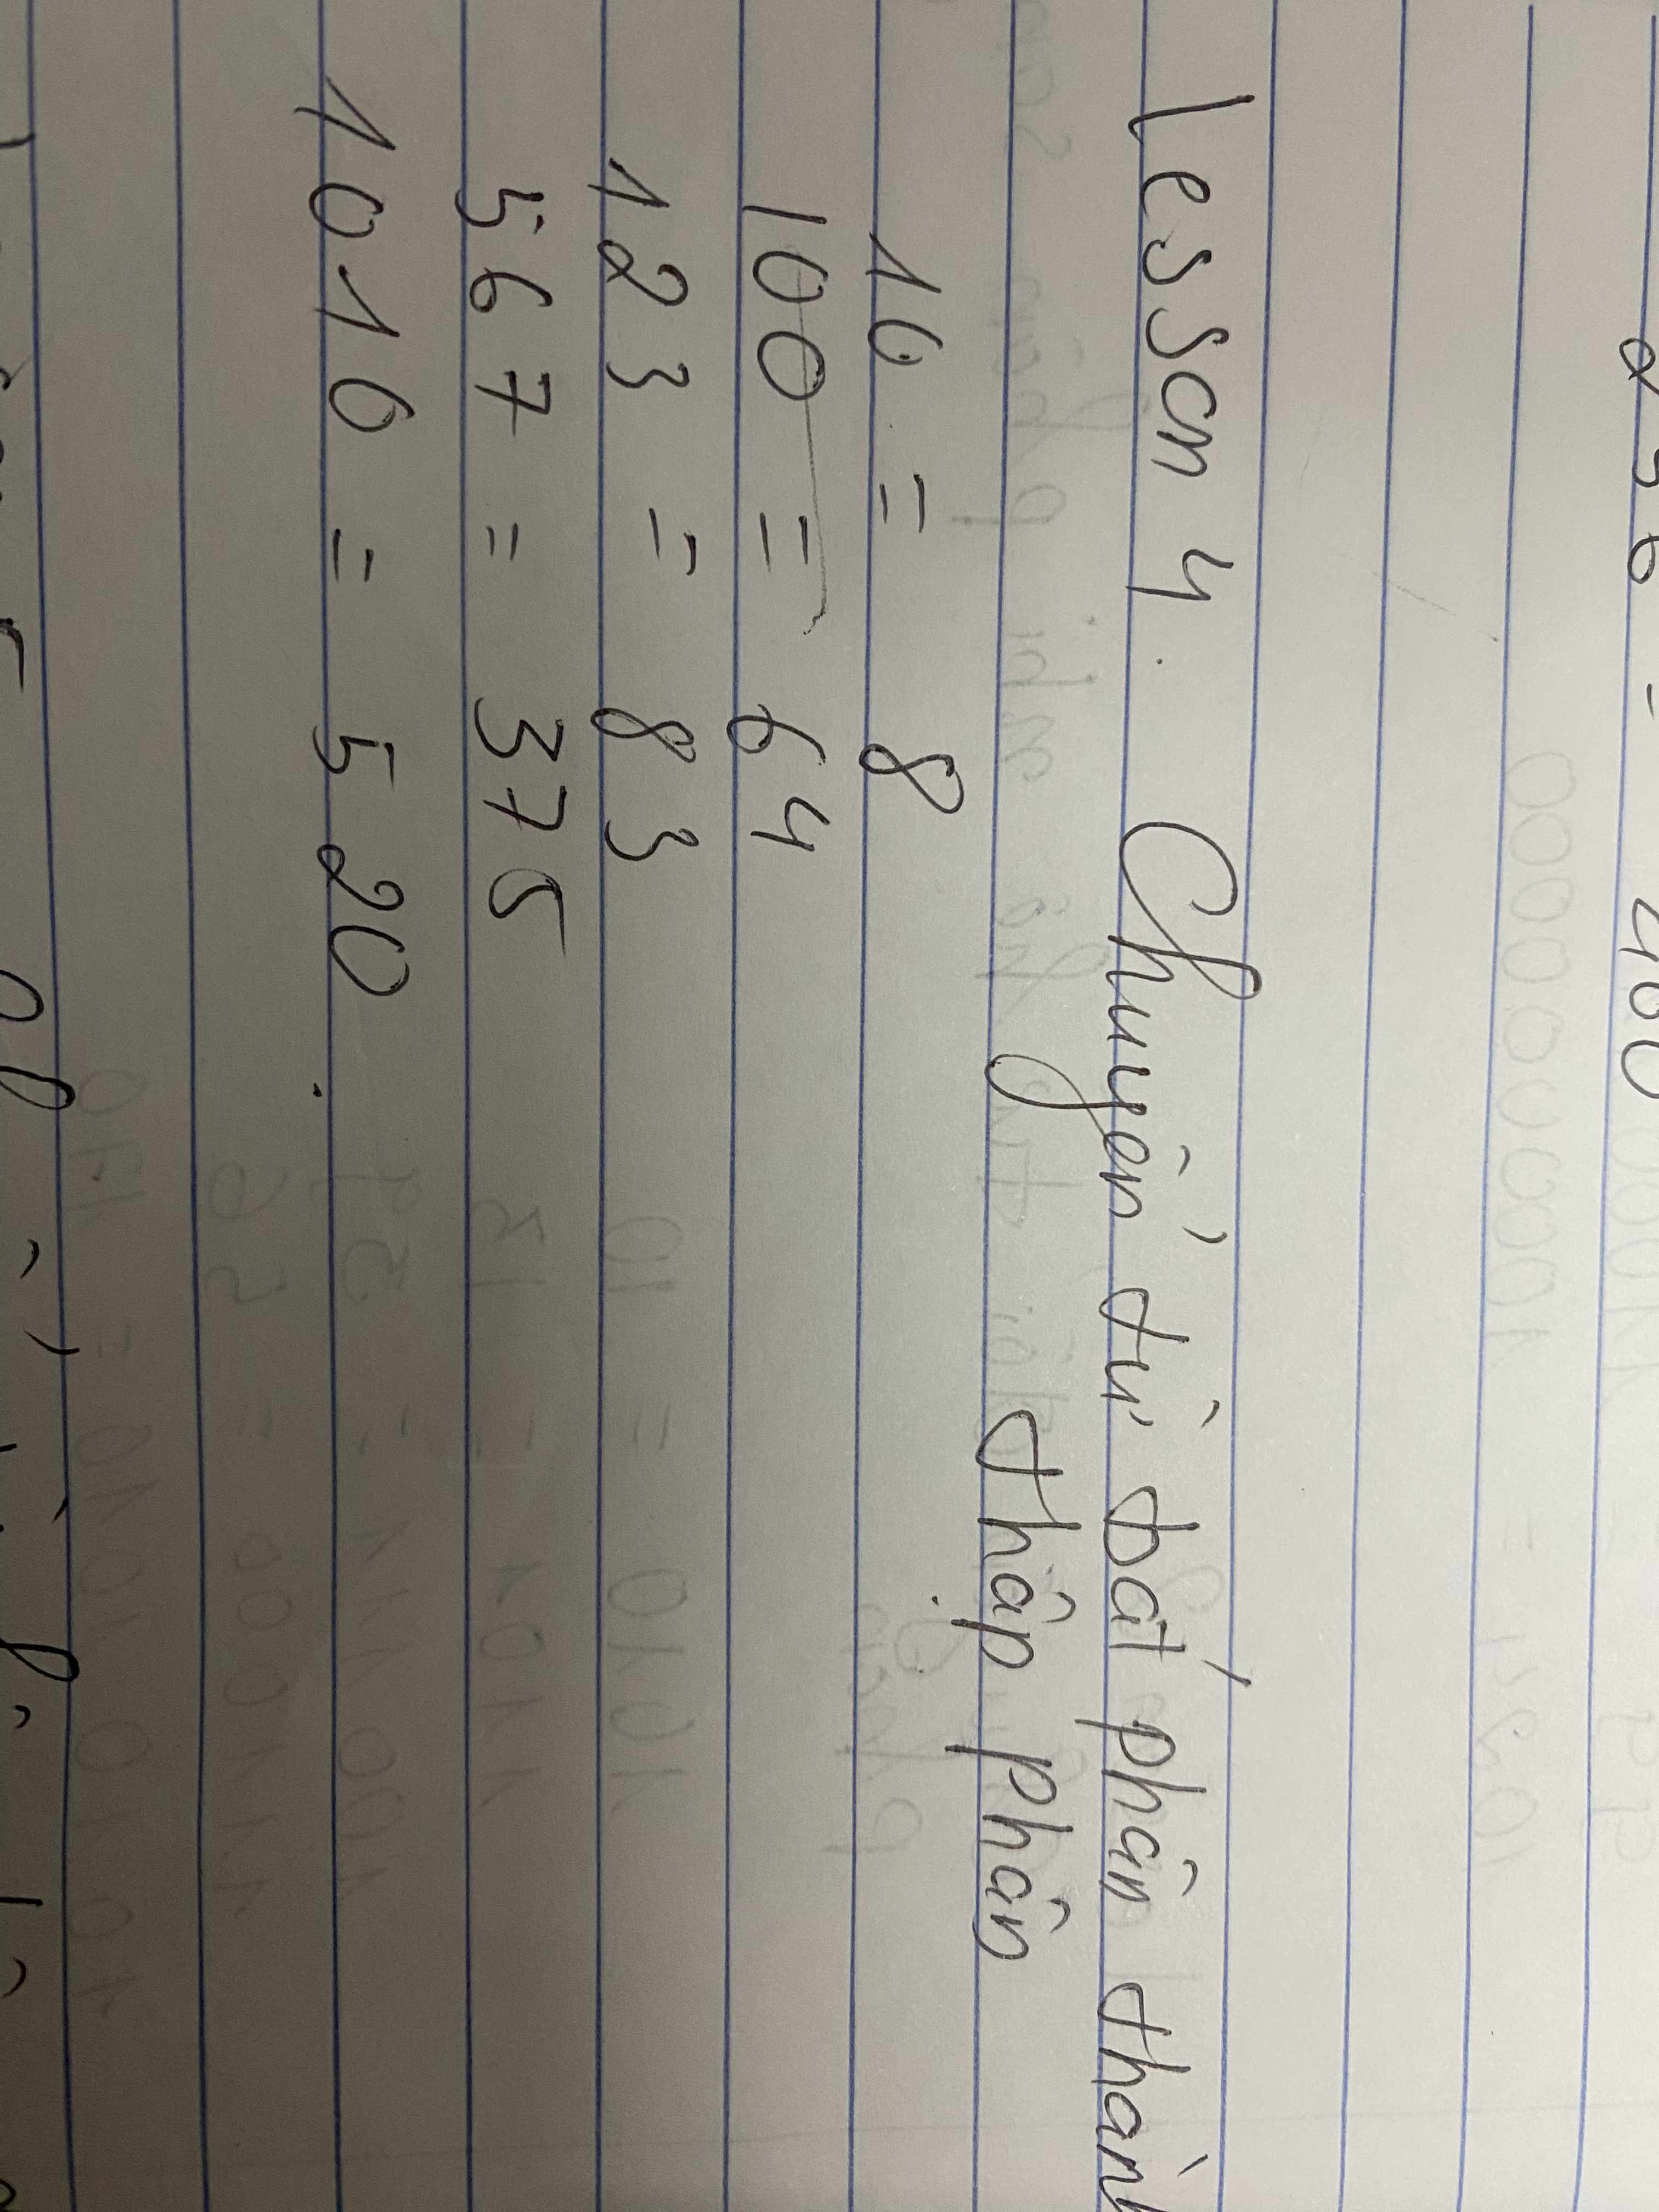 256 = 400
Lesson 4. Chuyển từ bát phân thành
thập phân
10 = 8
100 = 64
123 = 83
567 = 375
1010 = 520